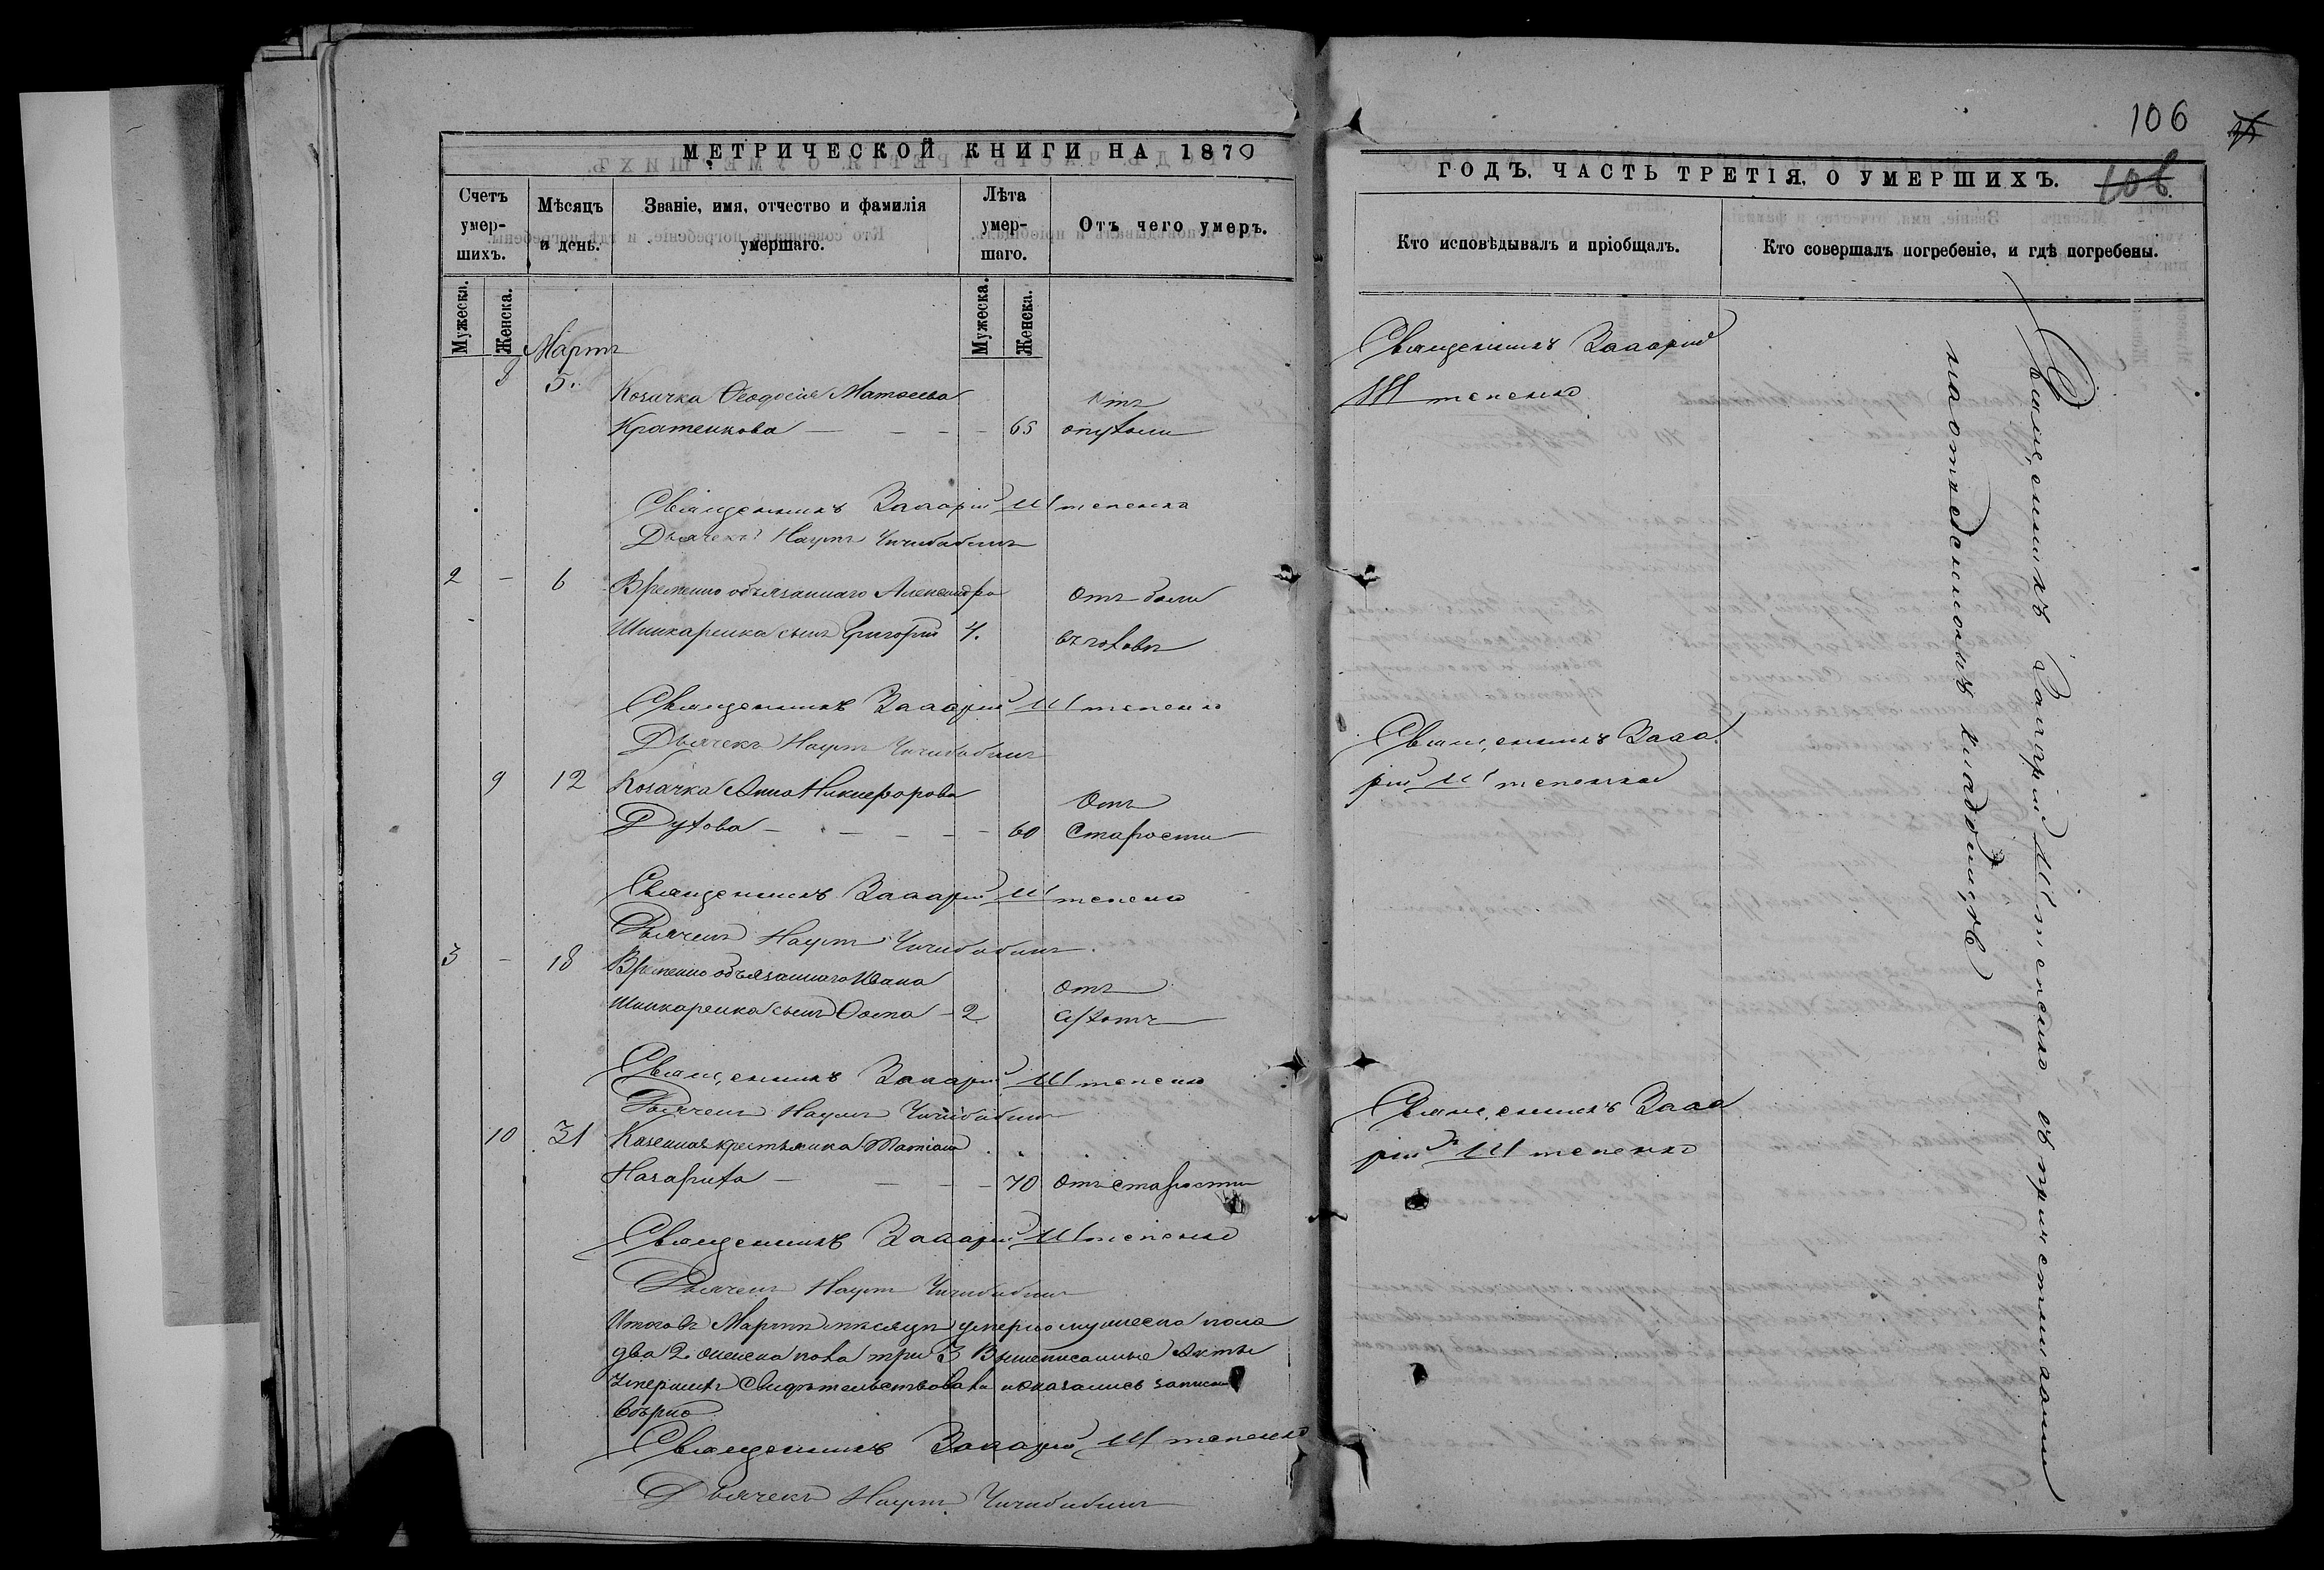 МЕТРИЧЕСКОЙ КНИГИ НА 1870
Счетъ умер-шихъ.
Мѣсяцъ и день.
Званіе, имя, отчество и фамилія умершаго.
Лѣта умер-шаго.
Отъ чего умеръ.
Мужеска.
Женска.
Мужеска.
Женска.
Мартъ
8 5. Козачка Ѳеодосія Матѳеева Отъ
Кратенкова — — — 65 опухоли
Священникъ Захарій Штепенко
Дьячекъ Наумъ Чичибабинъ
2 — 6 Временно обязаннаго Александра Отъ боли
Шинкаренка сынъ Григорій 4. въ головѣ
Священникъ Захарій Штепенко
Дьячекъ Наумъ Чичибабинъ
9 12 Козачка Анна Никифорова Отъ
Духова — — — — 60 Старости
Священникъ Захарій Штепенко
Дьячекъ Наумъ Чичибабинъ
3 — 18 Временно обязаннаго Ивана отъ
Шинкаренка сынъ Ѳома — 2
Священникъ Захарій Штепенко
Дьячекъ Наумъ Чичибабинъ
10 31 Казенная крестьянка Татіана
— — — 70 Отъ старости
Священникъ Захарій Штепенко
Дьячекъ Наумъ Чичибабинъ
Итого въ Мартѣ мѣсяцѣ умерло мужеска пола
два 2 женска пола три 3 Вышеписанные Акты
Умершихъ свидѣтельствовали
вѣрно
Священникъ Захарій Штепенко
Дьячекъ Наумъ Чичибабинъ
106
ГОДЪ. ЧАСТЬ ТРЕТІЯ, О УМЕРШИХЪ.
106
Кто исповѣдывалъ и пріобщалъ.
Кто совершалъ погребеніе, и гдѣ погребены.
Священникъ Захарій
Штепенко
Священникъ Заха
рій Штепенко
Священникъ Заха
рій Штепенко
Священникъ Захарій Штепенко съ причетниками
на отведенномъ кладбищѣ